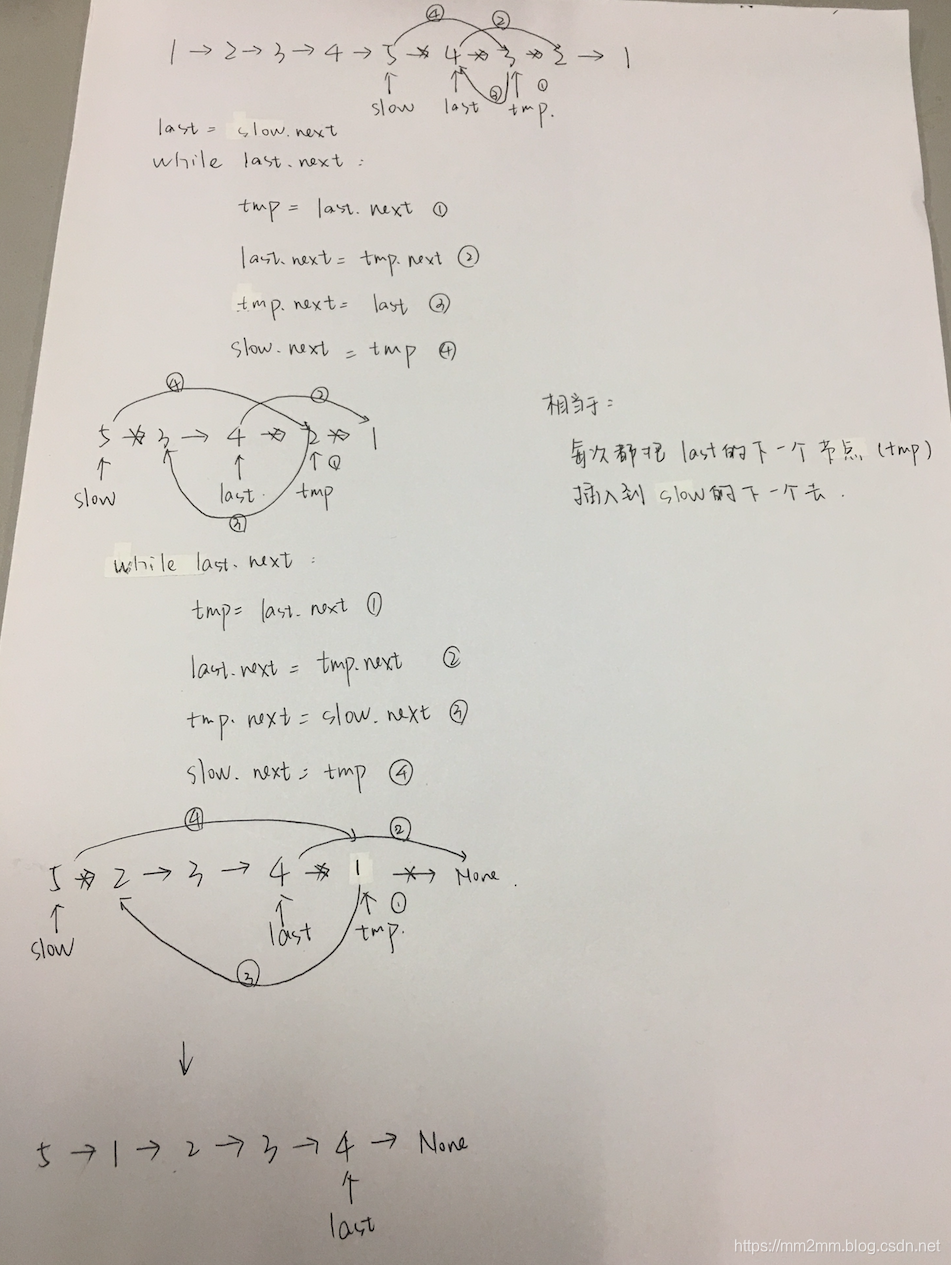 1 → 2 → 3 → 4 → 5 → 4 → 3 → 2 → 1
④ ② ③ ①
slow last tmp.
last = slow.next
while last.next :
tmp = last.next ①
last.next = tmp.next ②
tmp.next = last ③
slow.next = tmp ④
④ ②
5 → 3 → 4 → 2 → 1
①
slow last. tmp
③
相当于:
每次都把 last的下一个节点 (tmp)
插入到 slow的下一个去.
while last.next :
tmp = last.next ①
last.next = tmp.next ②
tmp.next = slow.next ③
slow.next = tmp ④
④ ②
5 → 2 → 3 → 4 → 1 → None.
①
slow last tmp.
③
↓
5 → 1 → 2 → 3 → 4 → None
last
https://mm2mm.blog.csdn.net